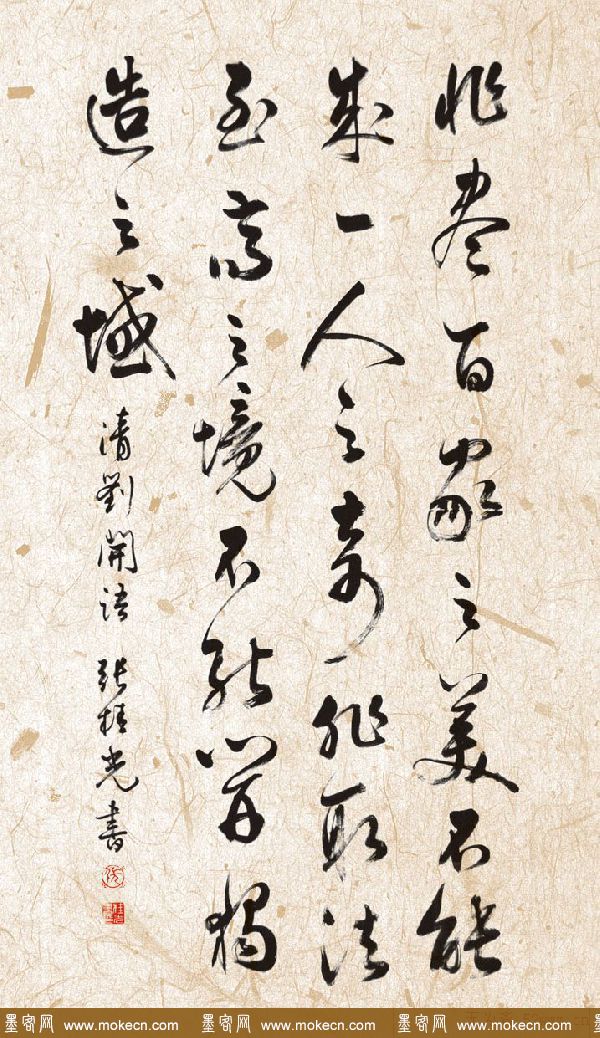 非尽百家之美不能
成一人之奇非取法
至高之境不能開獨
造之域
清劉開語 張桂光書
墨客网 www.mokecn.com 墨客网 www.mokecn.com 墨客网 www.mokecn.com